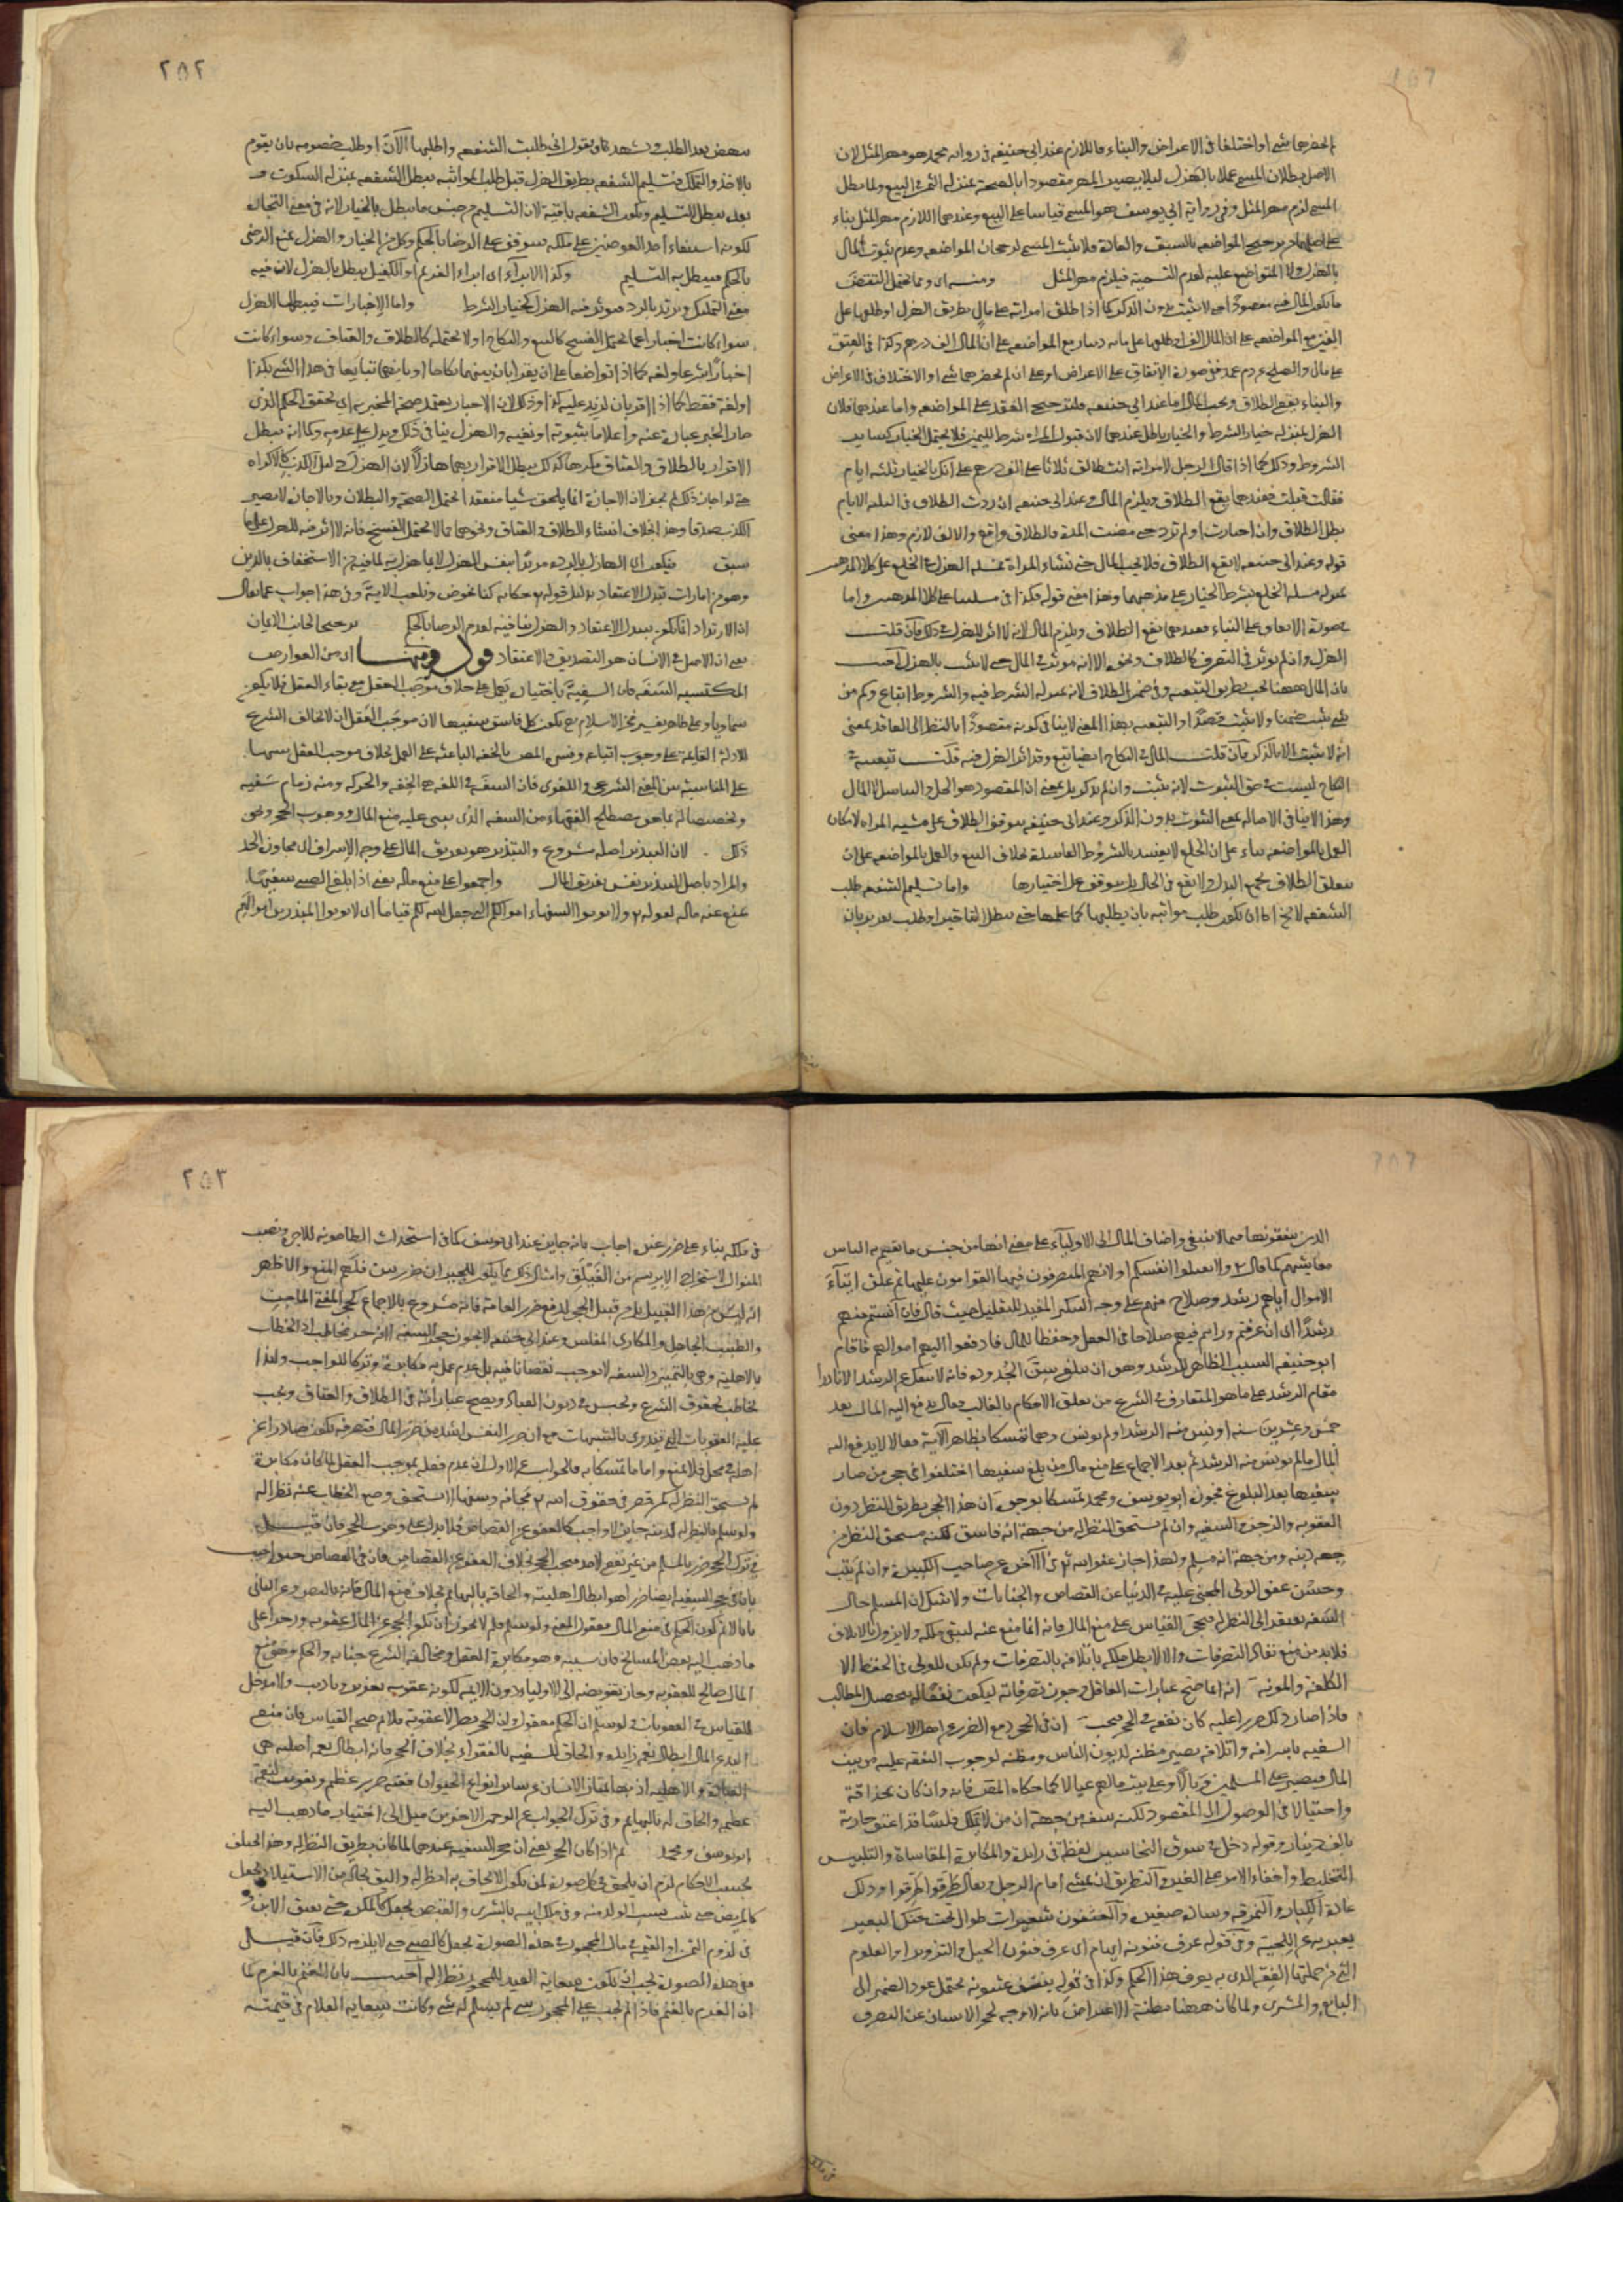 يحضرهما شيء او اختلفا في الاعراض والبناء فاللازم عند ابي حنيفة في رواية محمد هو مهر المثل لان
الاصل بطلان المسمى عملا بالهزل ليلا يصير المهر مقصودا بالصحة بمنزلة الثمن في البيع ولما بطل
المسمى لزم مهر المثل وفي رواية ابي يوسف هو المسمى قياسا على البيع وعندهما اللازم مهر المثل بناء
على اصلهما من ترجيح المواضعه بالسبق والعادة فلا يثبت المسمى لرجحان المواضعه وعدم ثبوت المال
بالهزل ولا المتواضع عليه لعدم التسمية فيلزم مهر المثل ومنه اي ومما يحتمل النقض
ما يكون المال فيه مقصودا حتى لا يثبت بدون الذكر كما اذا طلق امراته على مال بطريق الهزل او طلقها على
الفين مع المواضعه على ان المال الف او طلقها على ماية دينار مع المواضعه على ان المال الف درهم وكذا في العتق
على مال والصلح عن دم عمد ففي صورة الاتفاق على الاعراض او على ان لم يحضرهما شيء او الاختلاف في الاعراض
والبناء يقع الطلاق ويجب المال اما عند ابي حنيفه فلترجيح العقد على المواضعه واما عندهما فلان
الهزل بمنزلة خيار الشرط والخيار باطل عندهما لان قبول المراه شرط لليمين فلا يحتمل الخيار كساير
الشروط وذلك كما اذا قال الرجل لامراته انت طالق ثلاثا على الف درهم على انك بالخيار ثلثه ايام
فقالت قبلت فعندهما يقع الطلاق ويلزم المال وعند ابي حنيفه ان ردت الطلاق في الثلثه الايام
بطل الطلاق وان اجازت او لم ترد حتى مضت المدة فالطلاق واقع والالف لازم وهذا معنى
قوله وعند ابي حنيفه لا يقع الطلاق فلا يجب المال حتى تشاء المراة فمسله الهزل في الخلع على كلا المذهبين
بمنزله مسله الخلع بشرط الخيار على مذهبهما وهذا معنى قوله فكذا في مسلتنا على كلا المذهبين واما
في صورة الاتفاق على البناء فعندهما يقع الطلاق ويلزم المال لانه لا اثر للهزل في ذلك فان قلت
الهزل وان لم يوثر في التصرف كالطلاق ونحوه الا انه موثر في المال حتى لا يثبت بالهزل اجيب
بان المال ههنا يجب بطريق التبعيه وفي ضمن الطلاق لانه بمنزله الشرط فيه والشروط اتباع وكم من
شيء يثبت ضمنا ولا يثبت قصدا والتبعيه بهذا المعنى لا ينافي كونه مقصودا بالنظر الى العاقد بمعنى
انه لا يثبت الا بالذكر فان قلت المال في النكاح ايضا تبع وقد اثر الهزل فيه قلت تبعيته في
النكاح ليست في حق الثبوت لانه يثبت وان لم يذكر بل بمعنى ان المقصود هو الحل والتناسل لا المال
وهذا لا ينافي الاصاله بمعنى الثبوت بدون الذكر وعند ابي حنيفه يتوقف الطلاق على مشيه المراه لامكان
العمل بالمواضعه بناء على ان الخلع لا يفسد بالشروط الفاسدة بخلاف البيع والعمل بالمواضعه على ان
يتعلق الطلاق بجميع البدل ولا يقع في الحال بل يتوقف على اختيارها واما تسليم الشفعه طلب
الشفعه لا يخ اما ان يكون طلب مواثبه بان يطلبها كما علمها حتى يبطل بالتاخير او طلب تقرير بان
٢٥٢
ينهض بعد الطلب ويشهد ويقول اني طلبت الشفعه واطلبها الآن او طلب خصومه بان يقوم
بالاخذ والتملك فتسليم الشفعه بطريق الهزل قبل طلب المواثبه يبطل الشفعه بمنزله السكوت و
بعده يبطل التسليم وتكون الشفعه باقية لان التسليم من جنس ما يبطل بالخيار لانه في معنى التجارة
لكونه استبقاء احد العوضين على ملكه فيتوقف على الرضا بالحكم وكل من الخيار والهزل يمنع الرضى
بالحكم فيبطل به التسليم وكذا الابرآء اي ابراء الغريم او الكفيل يبطل بالهزل لان فيه
معنى التمليك ويرتد بالرد فيوثر فيه الهزل كخيار الشرط واما الاخبارات فيبطلها الهزل
سواء كانت اخبارا عما يحتمل الفسخ كالبيع والنكاح او لا يحتمله كالطلاق والعتاق وسواء كانت
اخبارا شرعا ولغه كما اذا تواضعا على ان يقرا بان بينهما نكاحا او بانهما تبايعا في هذا الشيء بكذا
او لغة فقط كما اذا اقر بان لزيد عليه كذا وذلك لان الاخبار يعتمد صحة المخبر به اي تحقق الحكم الذي
صار الخبر عبارة عنه واعلاما بثبوته او نفيه والهزل ينافي ذلك ويدل على عدمه وكما انه يبطل
الاقرار بالطلاق والعتاق مكرها كذلك يبطل الاقرار بهما هازلا لان الهزل دليل الكذب كالاكراه
حتى لو اجاز ذلك لم يجز لان الاجازة انما يلحق شيا منعقدا يحتمل الصحة والبطلان وبالاجازة لا يصير
الكذب صدقا وهذا بخلاف انشاء الطلاق والعتاق ونحوهما مما لا يحتمل الفسخ فانه لا اثر فيه للهزل على ما
سبق فيكون اي الهازل بالرده مرتدا بنفس الهزل لا بما هزل به لما فيه من الاستخفاف بالدين
وهو من امارات تبدل الاعتقاد بدليل قوله تع حكاية كنا نخوض ونلعب الاية وفي هذا جواب عما يقال
ان الارتداد انما يكون بتبدل الاعتقاد والهزل ينافيه لعدم الرضا بالحكم ترجيحا لجانب الايمان
يعني ان الاصل في الانسان هو التصديق والاعتقاد قوله ومنها اي من العوارض
المكتسبه السفه فان السفيه باختياره يعمل على خلاف موجب العقل مع بقاء العقل فلا يكون
سماويا وعلى ظاهر تفسير فخر الاسلام رح يكون كل فاسق سفيها لان موجب العقل ان لا يخالف الشرع
للادلة القايمة على وجوب اتباعه وفسره المص بالخفه الباعثه على العمل بخلاف موجب العقل تنبيها
على المناسبة بين المعنى الشرعي واللغوي فان السفه في اللغه هي الخفه والحركه ومنه زمام سفيه
وتخصيصا له بما هو مصطلح الفقهاء من السفه الذي يبتنى عليه منع المال ووجوب الحجر ونحو
ذلك لان التبذير اصله مشروع والتبذير هو تفريق المال على وجه الاسراف اي مجاوزة الحد
والمراد باصل التبذير نفس تفريق المال واجمعوا على منع ماله يعني اذا بلغ الصبي سفيها
يمنع عنه ماله لقوله تع ولا توتوا السفهاء اموالكم التي جعل الله لكم قياما اي لا توتوا المبذرين اموالهم
الذين ينفقونها فيما لا ينبغي واضاف المال الى الاولياء على معنى انها من جنس ما يقيم به الناس
معايشهم كما قال تع ولا تقتلوا انفسكم او لانهم المتصرفون فيها القوامون عليها ثم علق ايتآء
الاموال اياهم برشد وصلاح منهم على وجه التنكير المفيد للتقليل حيث قال فان آنستم منهم
رشدا اي ان عرفتم ورايتم فيهم صلاحا في العقل وحفظا للمال فادفعوا اليهم اموالهم فاقام
ابو حنيفه السبب الظاهر للرشد وهو ان يبلغ سن الجدودة فانه لا ينفك عن الرشد الا نادرا
مقام الرشد على ما هو المتعارف في الشرع من تعلق الاحكام بالغالب فقال يدفع اليه المال بعد
خمس وعشرين سنه اونس منه الرشد او لم يونس وهما تمسكا بظاهر الآية فقالا لا يدفع اليه
المال ما لم يونس منه الرشد ثم بعد الاجماع على منع مال من بلغ سفيها اختلفوا في حجر من صار
سفيها بعد البلوغ فجوزه ابو يوسف ومحمد تمسكا بوجوه ان هذا الحجر بطريق النظر دون
العقوبه والزجر والسفيه وان لم يستحق النظر له من جهة انه فاسق لكنه يستحق النظر من
جهه دينه ومن جهة انه مسلم ولهذا جاز عفو الله تع في الآخرة عن صاحب الكبيرة وان لم يتب
وحسن عفو الولي المجني عليه في الدنيا عن القصاص والجنايات ولا شك ان المسلم حال
السفه يفتقر الى النظر له فيجئ القياس على منع المال فانه انما منع عنه ليبقى ملكه ولا يزول بالاتلاف
فلا بد من منع نفاذ التصرفات والا لابطل ملكه باتلافه بالتصرفات ولم يكن للولي في الحفظ الا
الكلفة والمونة انه انما صح عبارات العاقل وجوز تصرفاته ليكون نفعا له بتحصيل المطالب
فاذا صار ذلك ضررا عليه كان نفعه في الحجر فيجب ان في الحجر دفع الضرر عن اهل الاسلام فان
السفيه باسرافه واتلافه يصير مظنه لديون الناس ومظنه لوجوب النفقه عليه من بيت
المال فيصير على المسلمين وبالا وعلى بيت مالهم عيالا كما حكاه المصنف فانه وان كان بحذاقة
واحتيالا في الوصول الى المقصود لكنه سفه من جهة ان من لا يملك فلسا قد اعتق جارية
بالف دينار وقوله دخل في سوق النخاسين لفظة في زايدة والمكابرة المقاساة والتلبيس
التخليط واخفاء الامر على الغير والتطريق ان يمشي امام الرجل ويقال طرقوا طرقوا وذلك
عادة الكبار والنمرقه وسادة صغيرة والعثنون شعيرات طوال تحت حنك البعير
يعبر به عن اللحية وفي قوله عرف فنونه ايهام اي عرف فنون الحيل والتزوير او العلوم
التي من جملتها الفقه الذي به يعرف هذا الحكم وكذا في قوله ينتف عثنونه يحتمل عود الضمير الى
البايع والمشتري ولما كان ههنا مظنة الاعتراض بانه لا وجه لحجر الانسان عن التصرف
٢٥٣
في ملكه بناء على ضرر غيره اجاب بانه جايز عند ابي يوسف كما في استحداث الطاحونه للاجرة ونصب
المنوال لاستخراج الابريسم من الفيلق وامثال ذلك مما يكون للجيران ضرر بين فلهم المنع والاظهر
انه ليس من هذا القبيل بل من قبيل الحجر لدفع ضرر العامة فانه مشروع بالاجماع كحجر المفتي الماجن
والطبيب الجاهل والمكاري المفلس وعند ابي حنيفه لا يجوز حجر السفيه لانه حر مخاطب اذ الخطاب
بالاهلية وهي بالتمييز والسفه لا يوجب نقصانا فيه بل عدم عمل به مكابرة وتركا للواجب ولهذا
يخاطب بحقوق الشرع ويحبس في ديون العباد ويصح عباراته في الطلاق والعتاق ويجب
عليه العقوبات التي تندري بالشبهات مع ان ضرر النفس اشد من ضرر المال فتصرفه يكون صادرا عن
اهله في محله فلا يمنع واما ما تمسكا به فالجواب عن الاول ان عدم فعله بموجب العقل لما كان مكابرة
لم يستحق النظر له كمن قصر في حقوق الله تع مجانة وسفها لا يستحق وضع الخطاب عنه نظرا له
ولو سلم فالنظر له لدينه جايز لا واجب كالعفو عن القصاص فلا يدل على وجوب الحجر فان قيل
في ترك الحجر ضرر بالمسلم من غير نفع لاحد فيجب الحجر بخلاف العفو عن القصاص فان في القصاص حيوة اجيب
بان في حجر السفيه ايضا ضررا هو ابطال اهليته والحاقه بالبهايم بخلاف منع المال فانه بالنص وعن الثاني
بانا لا نم كون الحكم في منع المال معقول المعنى ولو سلم فلم لا يجوز ان يكون الحجر عن المال عقوبه وزجرا على
ما ذهب اليه بعض المشايخ فان سببه وهو مكابرة العقل ومخالفة الشرع جناية والحكم وهو منع
المال صالح للعقوبه وجاز تفويضه الى الاولياء دون الايمه لكونه عقوبه تعزير وتاديب ولا مدخل
للقياس في العقوبات ولو سلم ان الحكم معقول وان الحجر بطريق لا عقوبة فلا نم صحه القياس فان منع
اليد عن المال ابطال نعمه زايدة والحاق للسفيه بالفقراء بخلاف الحجر فانه ابطال نعمه اصليه هي
العبارة والاهليه اذ بها يمتاز الانسان عن ساير انواع الحيوان ففيه ضرر عظيم وتفويت لنعمه
عظيمه والحاق له بالبهايم وفي ترك الجواب عن الوجهين الاخيرين ميل الى اختيار ما ذهب اليه
ابو يوسف ومحمد ثم اذا كان الحجر يعني ان حجر السفيه عندهما لما كان بطريق النظر له وهذا مختلف
بحسب الاحكام لزم ان يلحق في كل صورة بمن يكون الالحاق به انظر له واليق بحاله من الاستيلاد يجعل
كالمريض حتى يثبت نسب الولد منه وفي ملك ابيه بالشرى والقبض يجعل كالمكره حتى يعتق الابن و
في لزوم الثمن او القيمه في مال المحجور في هذه الصورة يجعل كالصبي حتى لا يلزمه ذلك فان قيل
في هذه الصورة يجب ان يكون سعاية العبد للمحجور نظرا له اجيب بان الغنم بالغرم كما
ان الغرم بالغنم فاذا لم يجب على المحجور شيء لم يسلم له شيء وكانت سعاية الغلام في قيمته